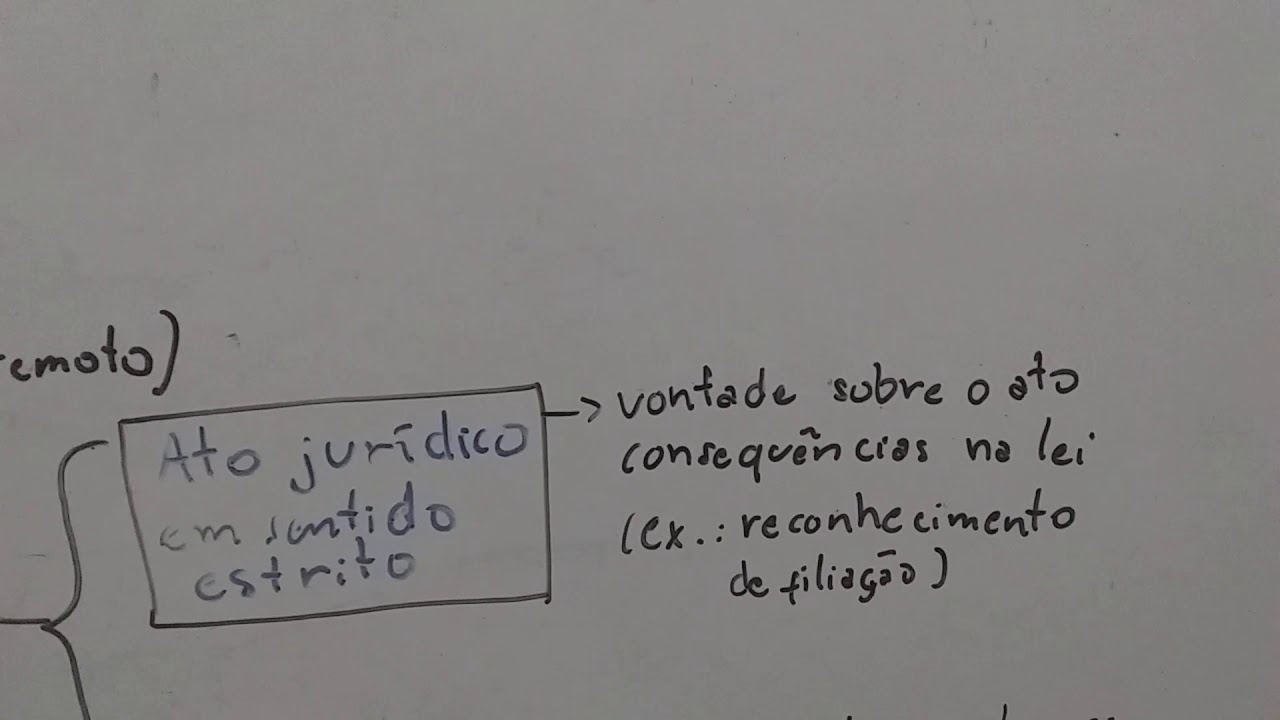 emoto)
Ato jurídico
em sentido
estrito
-> vontade sobre o ato
consequências na lei
(ex.: reconhecimento
de filiação)